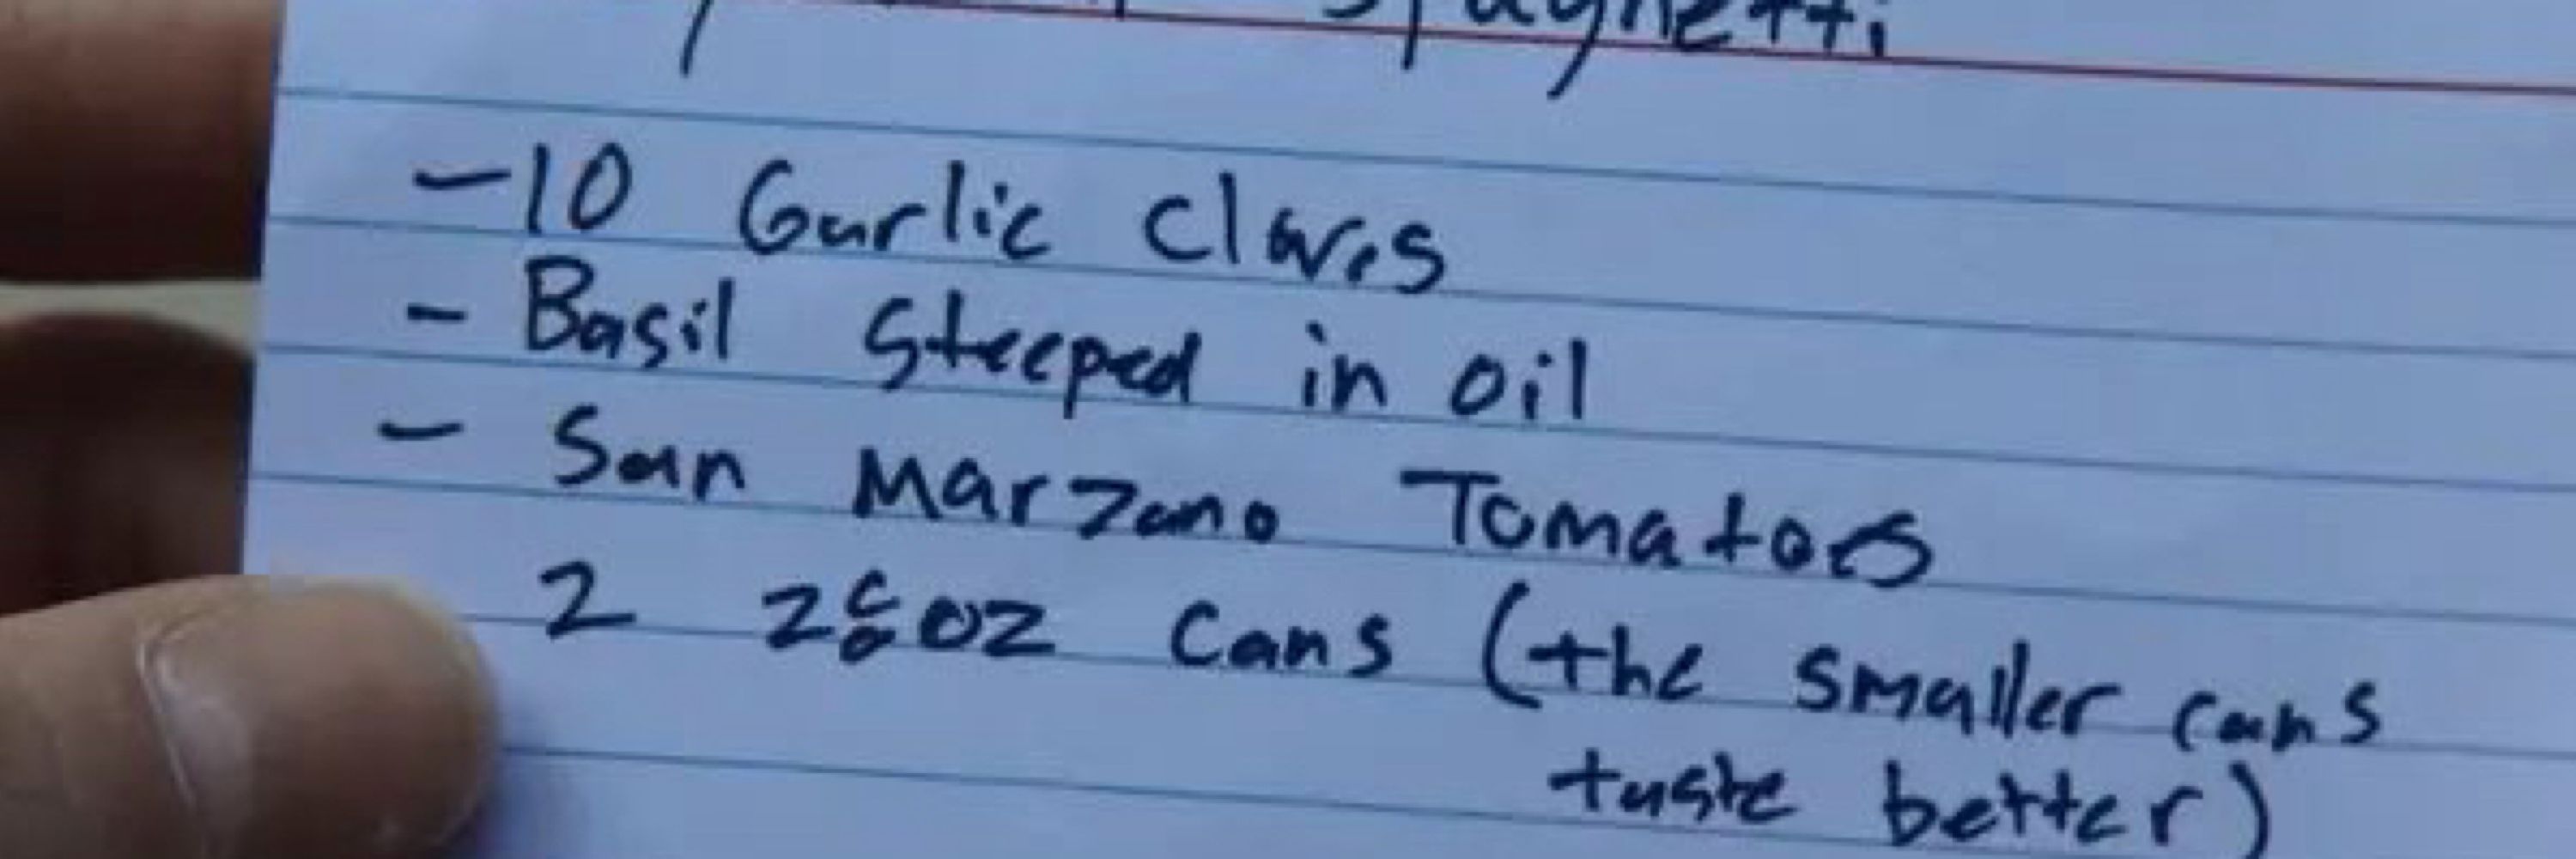 Spaghetti
- 10 Garlic Cloves
- Basil Steeped in oil
- San Marzano Tomatoes
2 28oz Cans (the smaller cans
taste better)